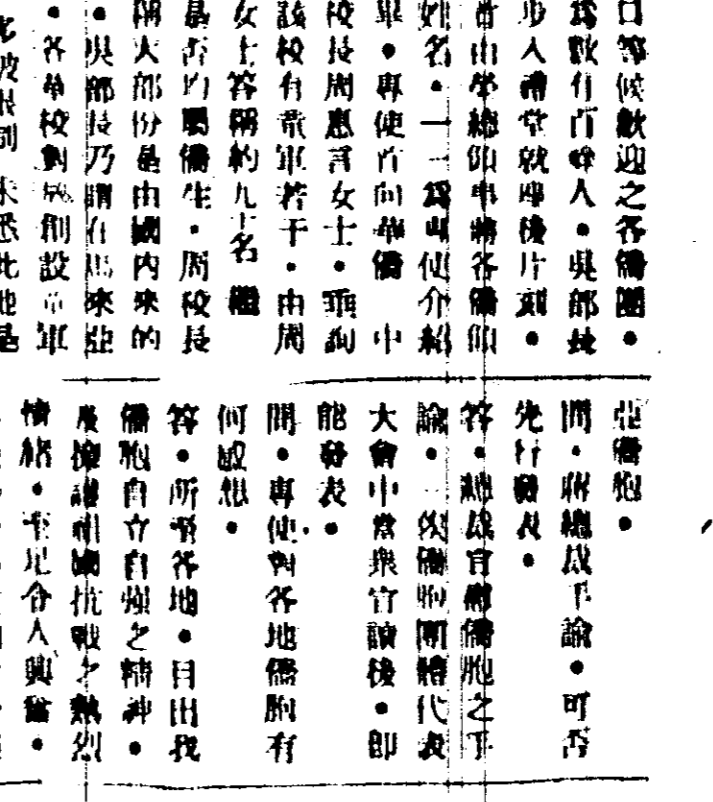 口等候歡迎之各僑團●
為數有百餘人●吳部長
步入禮堂就座後片刻●
由學總領事將各僑領
姓名●一一為專使介紹
畢●專使首向華僑 中
校長周惠言女士●垂詢
該校有童軍若干●由周
女士答稱約九十名 繼
是否均屬僑生●周校長
稱大部份是由國內來的
●吳部長乃謂在馬來亞
●各華校對於創設童軍
未悉此地是
亞僑胞●
問●蔣總裁手諭●可否
先行發表●
答●總裁宣慰僑胞之手
論●一俟僑胞團體代表
大會中當眾宣讀後●即
能發表●
問●專使對各地僑胞有
何感想●
答●所至各地●目由我
僑胞自立自強之精神●
及擁護祖國抗戰之熱烈
情緒●至足令人興奮●